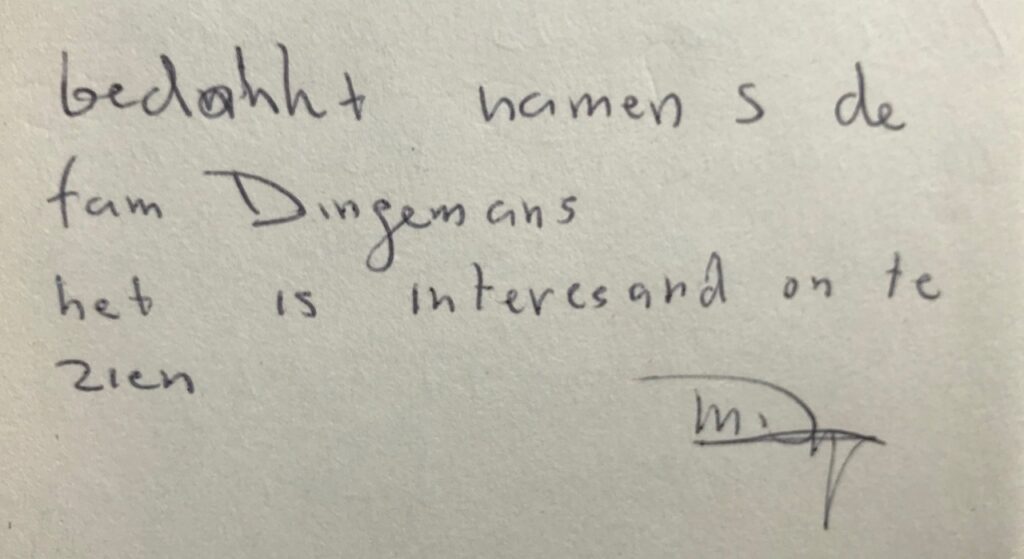 bedankt namens de
fam Dingemans
het is interesand on te
zien